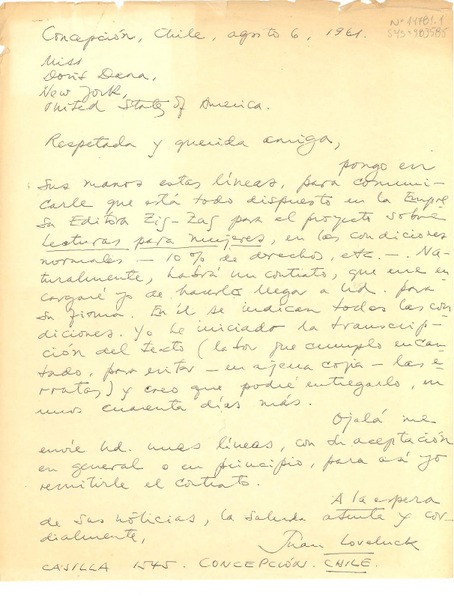 Nº 14181.1
SYS=983585
Concepción, Chile, agosto 6, 1961.
Miss
Doris Dana,
New York,
United States of America.
Respetada y querida amiga,
pongo en
sus manos estas líneas, para comuni-
carle que está todo dispuesto en la Empre
sa Editora Zig-Zag para el proyecto sobre
Lecturas para mujeres, en las condiciones
normales — 10% de derechos, etc. —. Na-
turalmente, habrá un contrato, que me en
cargaré yo de hacerlo llegar a Ud. para
su firma. En él se indican todas las con
diciones. Yo he iniciado la transcrip-
ción del texto (labor que cumplo encan-
tado, para evitar — en ajena copia — las e-
rratas) y creo que podré entregarlo, en
unos cuarenta días más.
Ojalá me
envíe Ud. unas líneas, con su aceptación
en general o en principio, para así yo
remitirle el contrato.
A la espera
de sus noticias, la saluda atente y cor-
dialmente,
Juan Loveluck
CASILLA 1545. CONCEPCIÓN. CHILE.